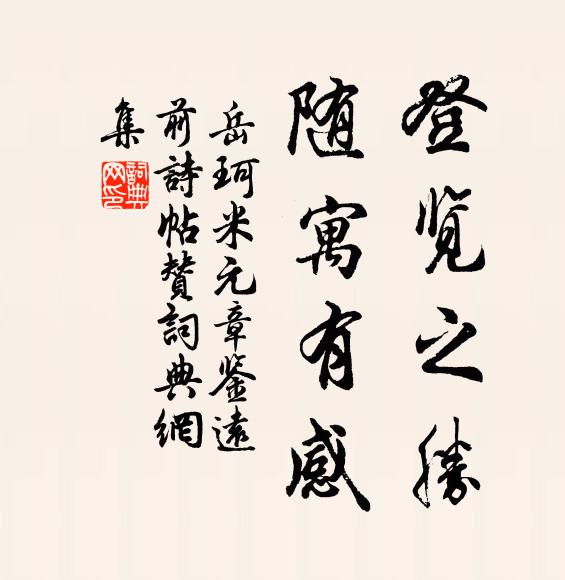 登览之勝
随寓有感
岳珂米元章鉴遠
前詩帖賛詞典網
集
詞典
网印